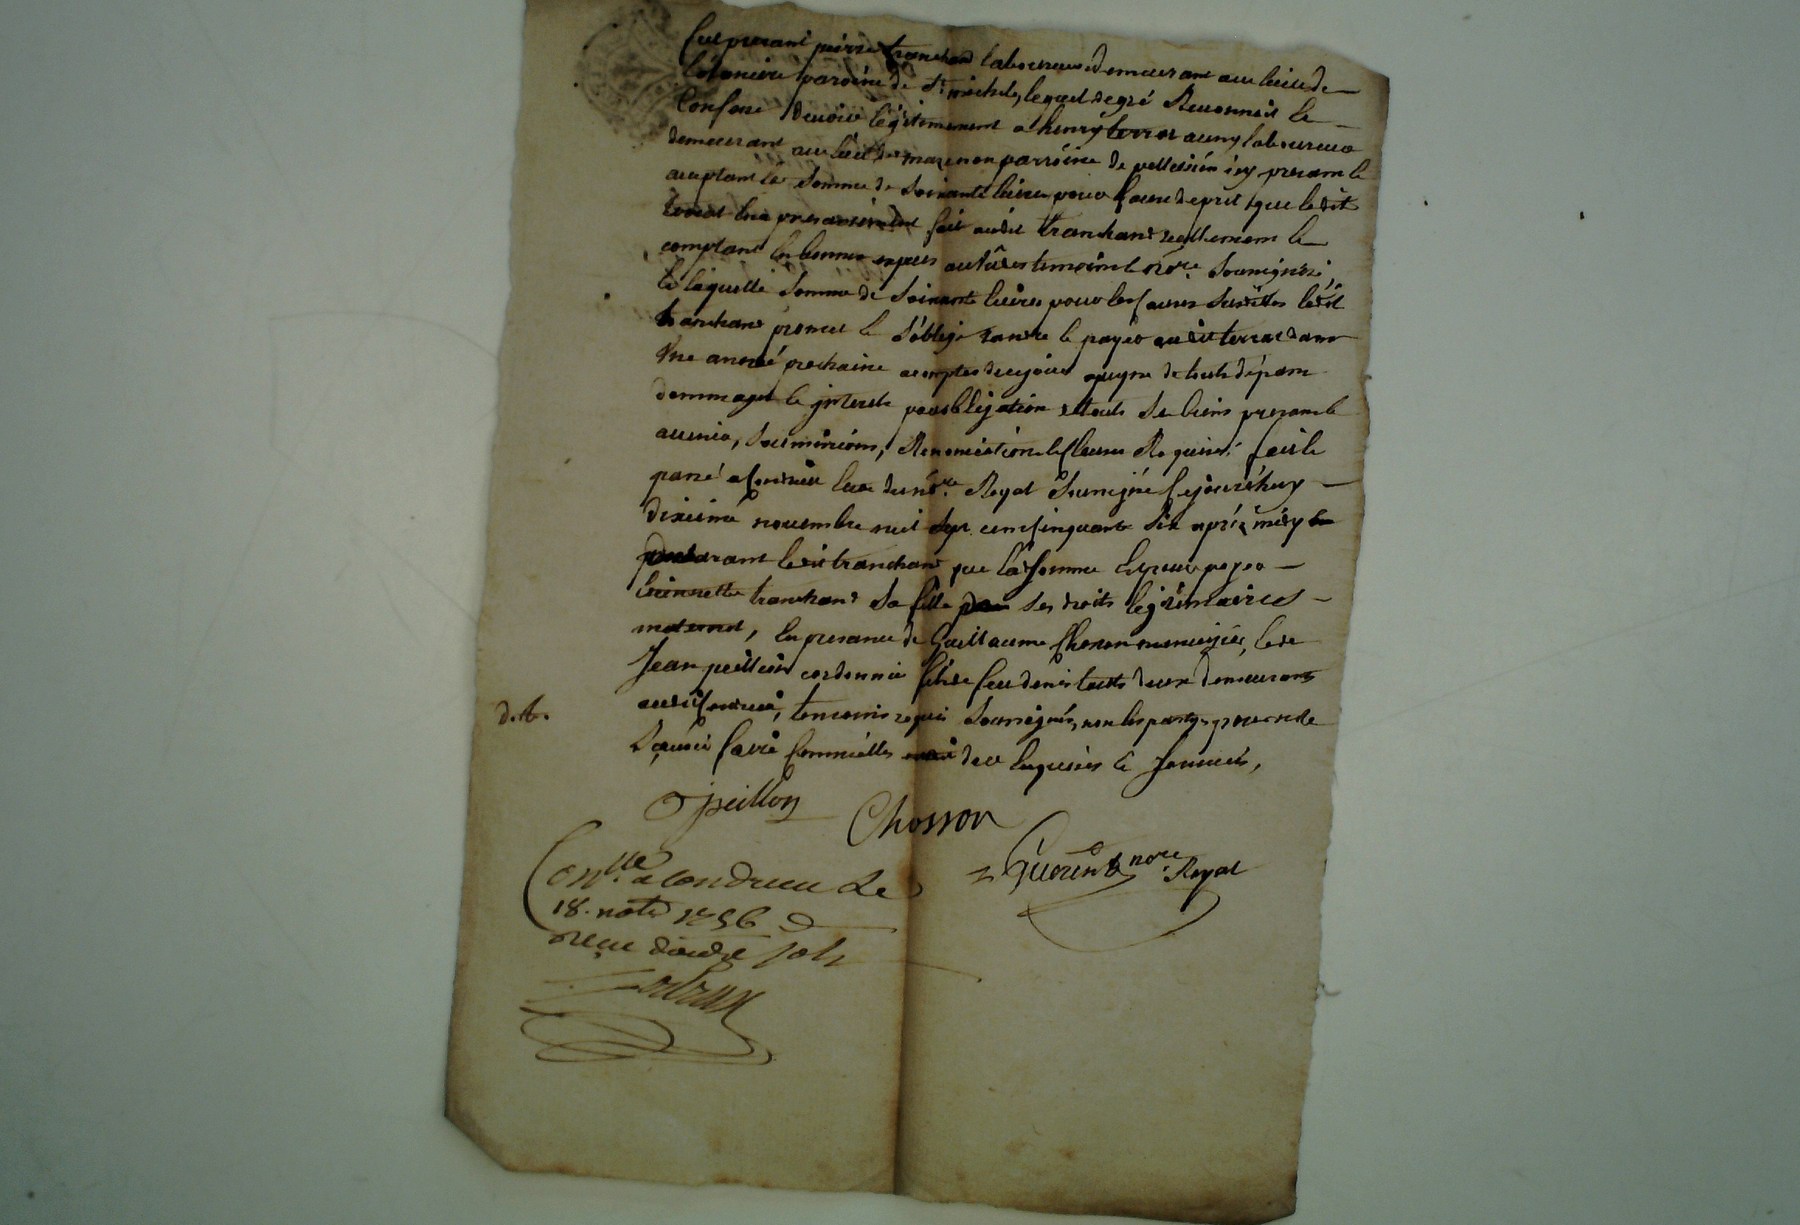 fut present pierre tranchand laboureur demeurant au lieu de
paroisse de St michel, lequel de gré Reconnoit et
Confesse devoir légitimement a henry terrat auny laboureur
demeurant au lieu de mazenon parroisse de pellussin icy present et
aceptant la somme de soixante livres pour cause de prest que ledit
terrat luy presentement fait audit tranchand reellement et
comptant en bonnes especes au vû des temoins et nore. soussignés,
la laquelle somme de soixante livres pour les causes susdittes ledit
tranchand promet et s'oblige rendre et payer audit terrat dans
une année prochaine a compter de ce jour a peyne de touts dépens
dommages et interets par obligation de touts ses biens presents et
avenir, soumissions, Renonciations et clauses Requises. fait et
passé a Condrieu etude du nore. Royal soussigné ce jourd'huy
dixieme novembre mil sept cent cinquante six après midy
declarant ledit tranchand que la somme est pour payer
tranchand sa fille ses droits legitimaires
maternel, en presence de Guillaume Chosson menuisier, et de
Jean peillon cordonnier fils de feu denis touts deux demeurants
audit Condrieu, temoins requis soussignés, non les partyes pour ne
sçavoir faire comme elles ont dit de ce enquises et sommées,
d. t.
J peillon
Chosson
Guerin nore. Royal
Conlle. a Condrieu Le
18. nobre 1756
reçu douze sols